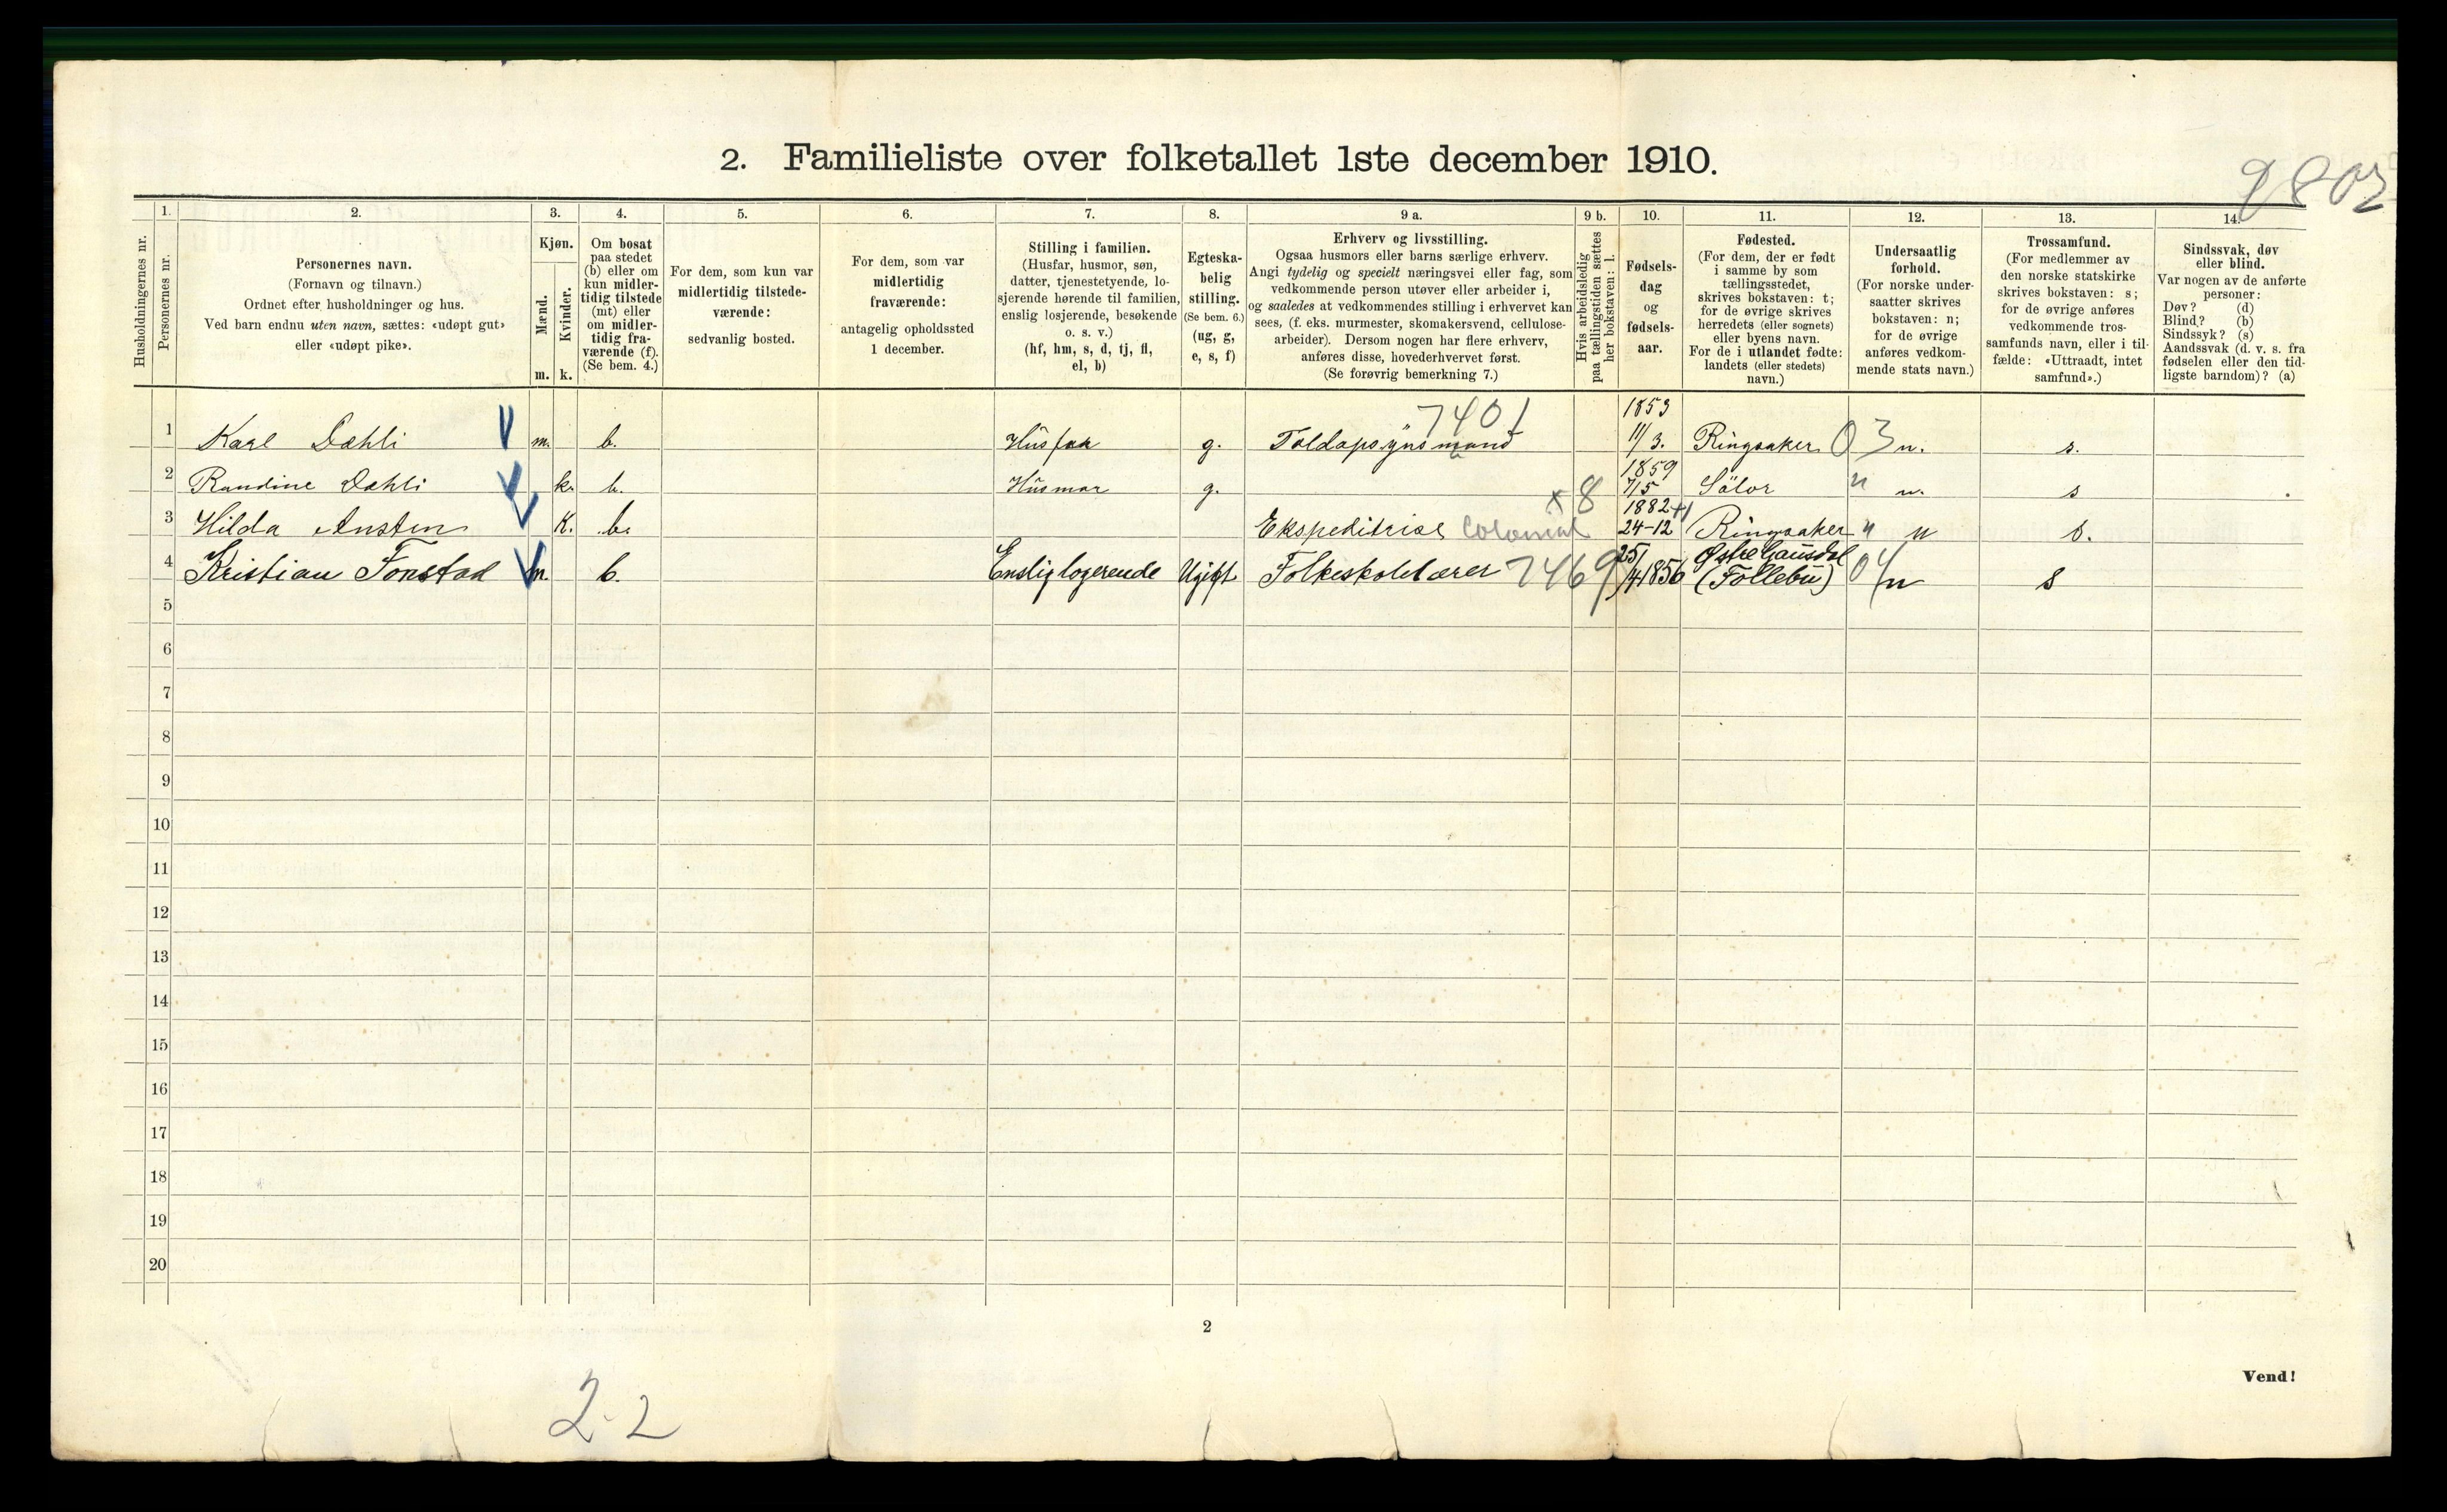 2. Familieliste over folketallet 1ste december 1910.
9802
1. 2. 3. 4. 5. 6. 7. 8. 9 a. 9 b. 10. 11. 12. 13. 14.
Husholdningernes nr.
Personernes nr.
Personernes navn.
(Fornavn og tilnavn.)
Ordnet efter husholdninger og hus.
Ved barn endnu uten navn, sættes: «udøpt gut»
eller «udøpt pike».
Kjøn.
Mænd.
Kvinder.
m. k.
Om bosat
paa stedet
(b) eller om
kun midler-
tidig tilstede
(mt) eller
om midler-
tidig fra-
værende (f).
(Se bem. 4.)
For dem, som kun var
midlertidig tilstede-
værende:
sedvanlig bosted.
For dem, som var
midlertidig
fraværende:
antagelig opholdssted
1 december.
Stilling i familien.
(Husfar, husmor, søn,
datter, tjenestetyende, lo-
sjerende hørende til familien,
enslig losjerende, besøkende
o. s. v.)
(hf, hm, s, d, tj, fl,
el, b)
Egteska-
belig
stilling.
(Se bem. 6.)
(ug, g,
e, s, f)
Erhverv og livsstilling.
Ogsaa husmors eller barns særlige erhverv.
Angi tydelig og specielt næringsvei eller fag, som
vedkommende person utøver eller arbeider i,
og saaledes at vedkommendes stilling i erhvervet kan
sees, (f. eks. murmester, skomakersvend, cellulose-
arbeider). Dersom nogen har flere erhverv,
anføres disse, hovederhvervet først.
(Se forøvrig bemerkning 7.)
Hvis arbeidsledig
paa tællingstiden sættes
her bokstaven: l.
Fødsels-
dag
og
fødsels-
aar.
Fødested.
(For dem, der er født
i samme by som
tællingsstedet,
skrives bokstaven: t;
for de øvrige skrives
herredets (eller sognets)
eller byens navn.
For de i utlandet fødte:
landets (eller stedets)
navn.)
Undersaatlig
forhold.
(For norske under-
saatter skrives
bokstaven: n;
for de øvrige
anføres vedkom-
mende stats navn.)
Trossamfund.
(For medlemmer av
den norske statskirke
skrives bokstaven: s;
for de øvrige anføres
vedkommende tros-
samfunds navn, eller i til-
fælde: «Uttraadt, intet
samfund».)
Sindssvak, døv
eller blind.
Var nogen av de anførte
personer:
Døv? (d)
Blind? (b)
Sindssyk? (s)
Aandssvak (d. v. s. fra
fødselen eller den tid-
ligste barndom)? (a)
7401 1853
1 Karl Dæhli m. b. Husfar g. Toldopsynsmand 11/3. Ringsaker 03 n. s.
1859
2 Randine Dæhli k. b. Husmor g. 7/5 Sölor " n. s
x 8 1882
3 Hilda Austen K. b. Ekspeditrise Colonial 24-12 Ringsaker " n s.
4 Kristian Fonstad m. b. Enslig logerende Ugift Folkeskolelærer 7469 25/4 1856 Østre Gausdal (Follebu) 04 n s
5
6
7
8
9
10
11
12
13
14
15
16
17
18
19
20
2
Vend!
2-2